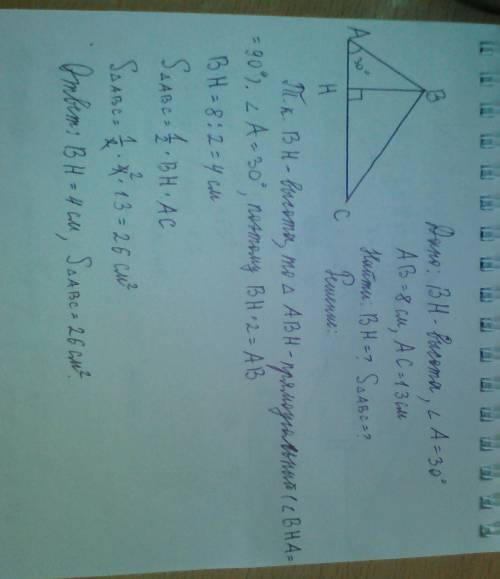 B
A
30°
H
C
Дано: BH - высота, ∠A = 30°
AB = 8 см, AC = 13 см
Найти: BH = ? S△ABC = ?
Решение:
Т.к. BH - высота, то △ ABH - прямоугольный (∠BHA =
= 90°). ∠A = 30°, поэтому BH · 2 = AB
BH = 8 : 2 = 4 см
S△ABC = 1/2 · BH · AC
S△ABC = 1/2 · 4 2 · 13 = 26 см²
Ответ: BH = 4 см, S△ABC = 26 см².